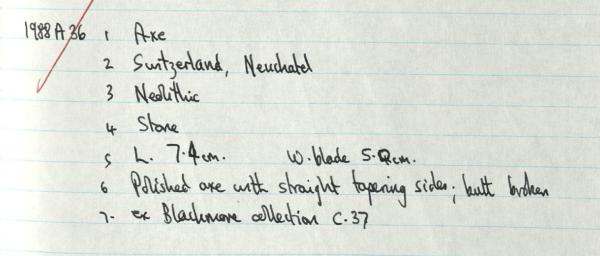 1988 A 36 1 Axe
2 Switzerland, Neuchatel
3 Neolithic
4 Stone
5 L. 7.4cm. W. blade 5.0cm.
6 Polished axe with straight tapering sides; butt broken
7. ex Blackmore collection C.37